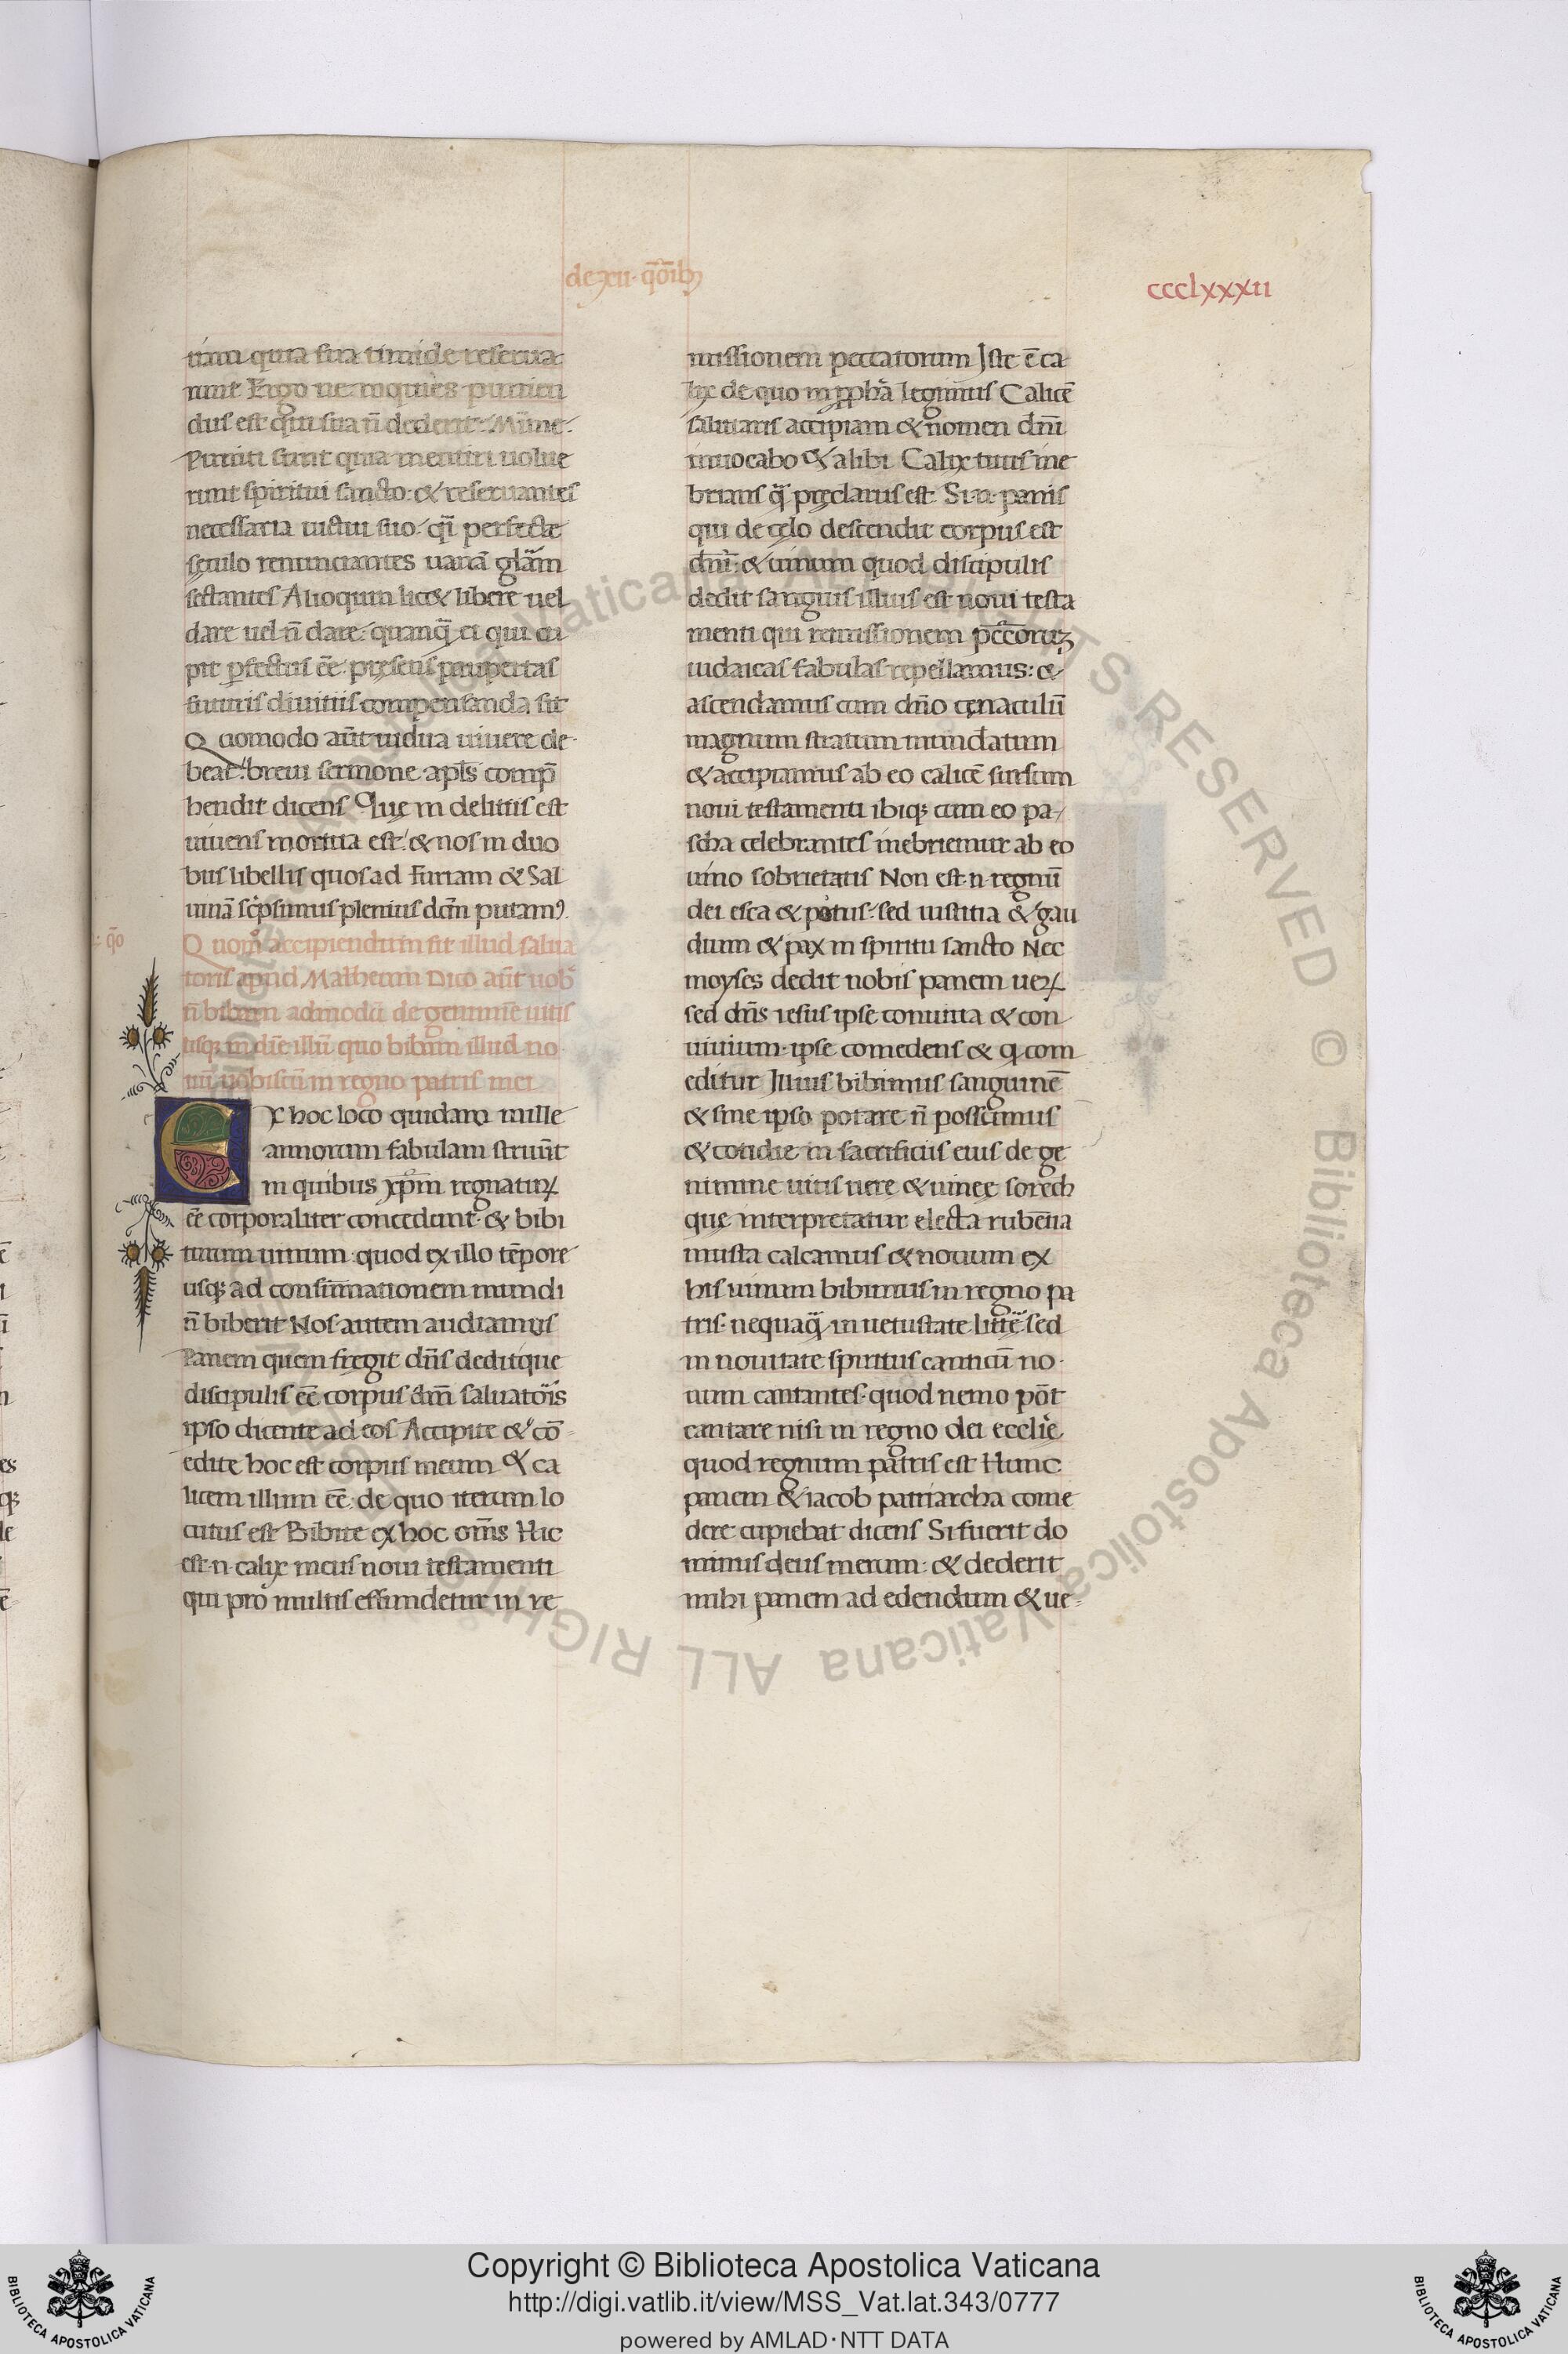 de xii· q̄oĩbȝ
ccclxxxii
tium quia sua timide reserua
runt Ergo ne inquies punien
dus est qui sua ñ dederit: Mĩme·
Puniti sunt quia mentiri uolue
runt spiritui sancto: & reseruantes
necessaria uictui suo· q̃i perfecte
sęculo renunciantes uanã glãm
sectantes Alioquin licet libere uel
dare uel ñ dare: quanq̃ ei qui cu
pit ꝑfectus eẽ: pręsens paupertas
futuris diuitiis compensanda sit
Quomodo aũt uidua uiuere de
beat: breui sermone apl̃s comp̃
hendit dicens Quę in delitiis est
uiuens mortua est: & nos in duo
bus libellis quos ad Furiam & Sal
uinã scͥpsimus plenius dcm̃ putamꝰ
: q̃o
Quomͦ accipiendum sit illud salua
toris apud Matheum Dico aũt uob̾
ñ bibam admodũ de genimĩe uitis
usqȝ in diẽ illũ quo bibam illud no
uũ uobiscũ in regno patris mei
Ex hoc loco quidam mille
annorum fabulam struũt
in quibus xp̃m regnaturꝝ
eẽ corporaliter concedunt· & bibi
turum uinum quod ex illo tẽpore
usqȝ ad consũmationem mundi
ñ biberit Nos autem audiamus
Panem quem fregit dñs deditque
discipulis eẽ corpus dñi saluatoris
ipso dicente ad eos Accipite & cõ
edite hoc est corpus meum & ca
licem illum eẽ de quo iterum lo
cutus est Bibite ex hoc om̃s Hic
est·n·calix meus noui testamenti
qui pro multis effundetur in re
missionem peccatorum Iste ẽ ca
lix de quo in ꝓphã legimus Calicẽ
salutaris accipiam & nomen dñi
inuocabo & alibi Calix tuus ine
brians q̃ pręclarus est Si·n·panis
qui de cęlo descendit corpus est
dñi: & uinum quod discipulis
dedit sanguis illius est noui testa
menti qui remissionem pc̃c̃oruȝ
iudaicas fabulas repellamus: &
ascendamus cum dño cęnaculũ
magnum stratum mundatum
& accipiamus ab eo calicẽ sursum
noui testamenti ibiqȝ cum eo pa
scha celebrantes inebriemur ab eo
uino sobrietatis Non est·n·regnũ
dei esca & potus: sed iustitia & gau
dium & pax in spiritu sancto Nec
moyses dedit nobis panem uerꝝ
sed dñs iesus ipse conuiua & con
uiuium· ipse comedens & q com
editur Illius bibimus sanguinẽ
& sine ipso potare ñ possumus
& cotidie in sacrificiis eius de ge
nimine uitis uere & uineę sorech
quę interpretatur electa rubẽtia
musta calcamus & nouum ex
his uinum bibimus in regno pa
tris· nequaq̃ in uetustate litt̃ę sed
in nouitate spiritus canticũ no
uum cantantes· quod nemo põt
cantare nisi in regno dei eccl̃ie
quod regnum patris est Hunc
panem & iacob patriarcha come
dere cupiebat dicens Si fuerit do
minus deus mecum: & dederit
mihi panem ad edendum & ue
ALL RIGHTS RESERVED © Biblioteca Apostolica Vaticana
BIBLIOTECA APOSTOLICA VATICANA
Copyright © Biblioteca Apostolica Vaticana
http://digi.vatlib.it/view/MSS_Vat.lat.343/0777
powered by AMLAD·NTT DATA
BIBLIOTECA APOSTOLICA VATICANA